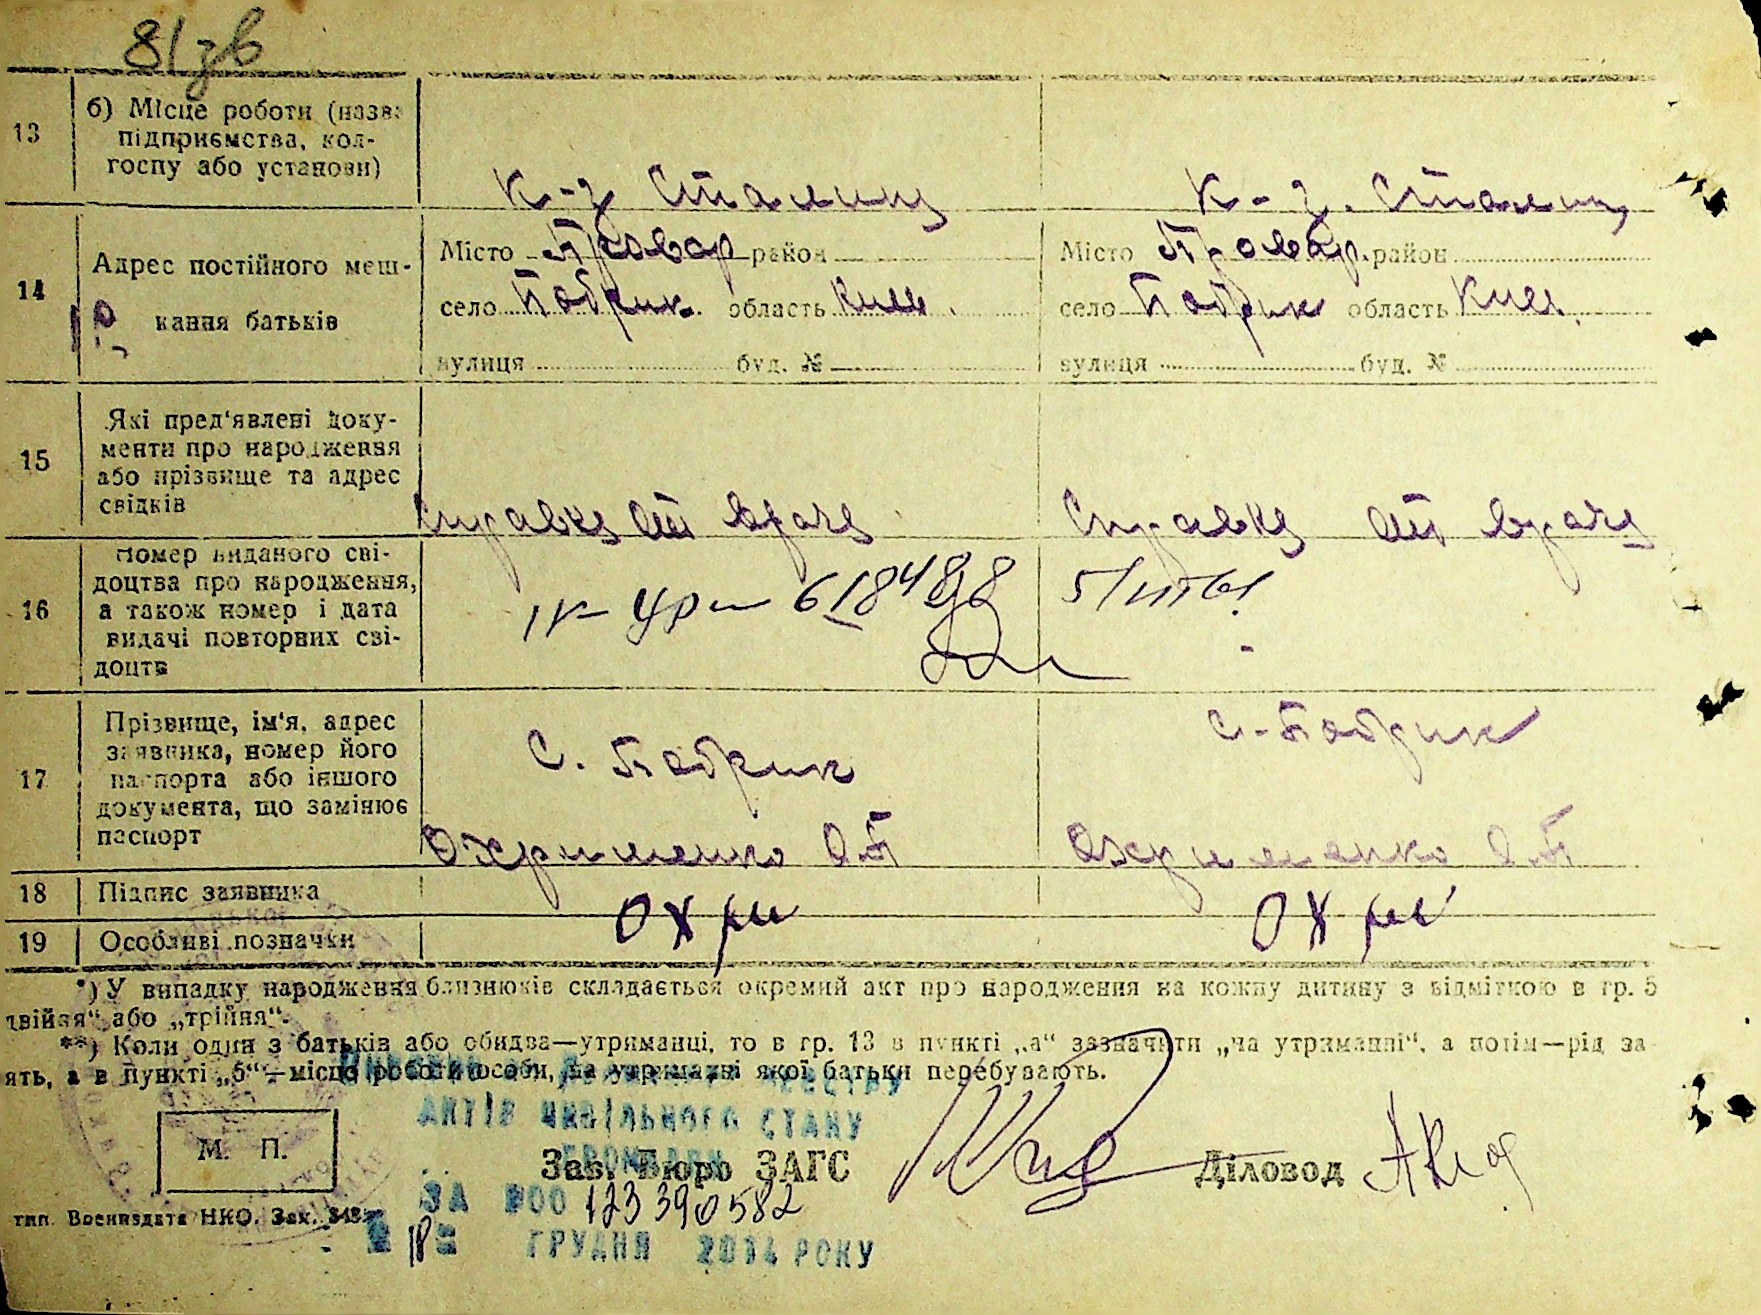 81зв
13
б) Місце роботи (назва
підприємства, кол-
госпу або установи)
К-з Сталина
К-з. Сталина
14
Адрес постійного меш-
кання батьків
Місто Бровар район
село Бобрик область Киев.
вулиця буд. №
Місто Бровар. район
село Бобрик область Киев.
вулиця буд. №
15
Які пред'явлені доку-
менти про народження
або прізвище та адрес
свідків
Справка от врача
Справка от врача
16
Номер виданого сві-
доцтва про народження,
а також номер і дата
видачі повторних сві-
доцтв
618498
17
Прізвище, ім'я, адрес
заявника, номер його
паспорта або іншого
документа, що замінює
паспорт
с. Бобрик
Охрименко О.Б
с. Бобрик
Охрименко О.Б
18
Підпис заявника
Охри
Охри
19
Особливі позначки
*) У випадку народження близнюків складається окремий акт про народження на кожну дитину з відміткою в гр. 5
двійня" або „трійня".
**) Коли один з батьків або обидва—утриманці, то в гр. 13 в пункті „а" зазначити „на утриманні", а потім—рід за-
ять, а в пункті „б"—місце роботи особи, на утриманні якої батьки перебувають.
АКТІВ ЦИВІЛЬНОГО СТАНУ
ГРОМАДЯН
М. П.
Зав. Бюро ЗАГС
Діловод
ЗА №00 123390582
тип. Воениздата НКО. Зак.
18 ГРУДНЯ РОКУ